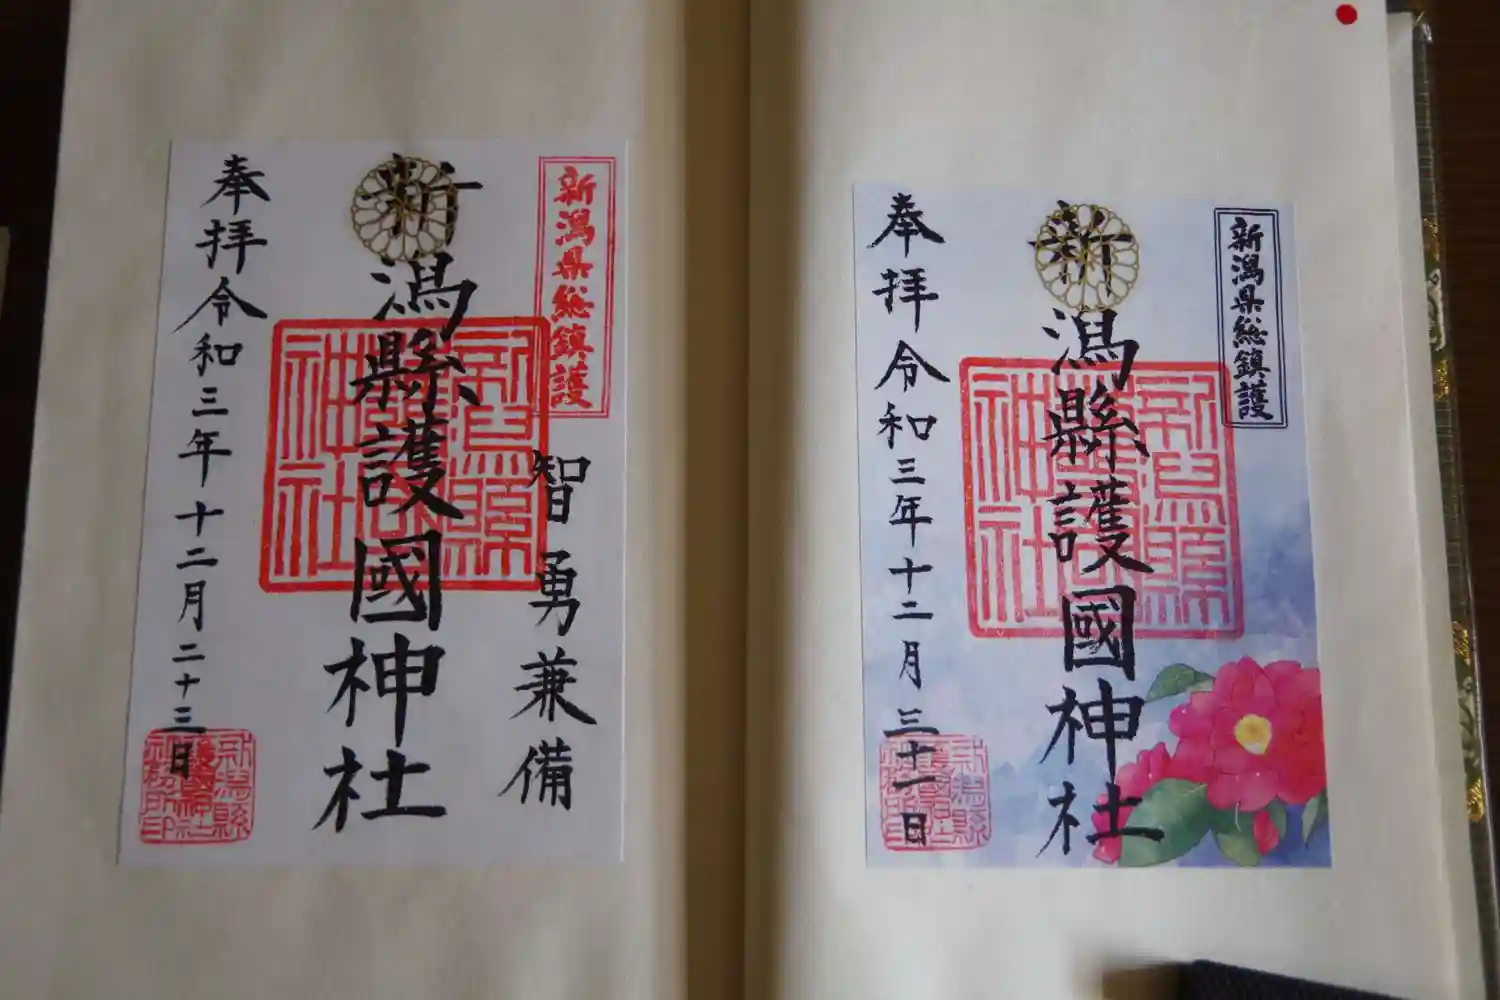 新潟県総鎮護
智勇兼備
新潟縣護國神社
奉拝令和三年十二月二十三日
新潟縣護國神社
新潟縣護國神社社務所印
新潟県総鎮護
新潟縣護國神社
奉拝令和三年十二月三十一日
新潟縣護國神社
新潟縣護國神社社務所印